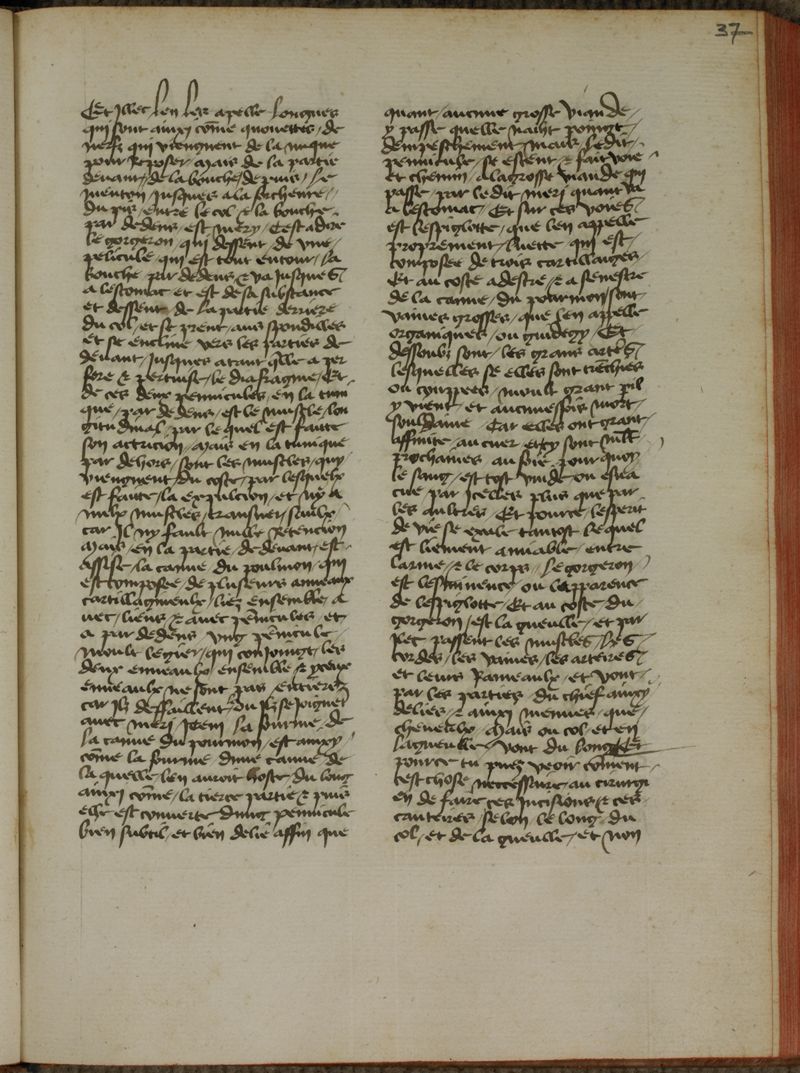 37
Et illec len les apelle longues
qui sont ainxi cõme quouettes / de
nerfz qui viengnent de la nuque
pour reposer / Mais de la partie
devant / de la bouche / depuis / le
menton jusques a la forcheure /
du pis / entre le col / & la bouche
par dedens / est mery / Cest a dire
le gorgeron / qui dessent / de une /
pelicule / qui est tout entour / la
bouche par dedens & va jusques
a lestomac et est de sa substance
et dessent / de la partie derriere
du col / et se prent / aux spondilles
et se encline vers les parties de
devant / jusques atant q̃lle a per
fore & pertuise / le diafragme / Et
de ces deux pennicules / en la tuni
que / par dedens / est le muscle / lon
gitudinal / par le quel / est faicte
son attricion / Mais en la tunique
par dehors / sont les muscles / qui
viengnent du coste / par lesquelx
est faicte / la expulcion / et ny a
nulx muscles / transver / saulx
car Il ny fault nulle retencion
Mais / en la partie / de devant / est
assise / la canne du poulmon / qui
est composee / de plusieurs anneaux
cartillagineulx / liez ensemble / a
vec / liens / & avec pẽnicules / et
a par dedens ung pẽnicule
moult legier / qui conjoingt / les
deux enneaulx ensemble / & yceux
enneaulx ne sont pas / entiers
car Ilz deffaillent / ou Ilz se joignẽt
avec meri / Item la fourme / de
la canne du poumon / est ainxy /
cõme la fourme dune canne de
la quelle len auroit hoste / du long
ainxi cõme / la tierce partie & puis
elle est couverte dung pennicule
bien subtil / et bien delie affin que
quant / aucune grosse viande
y passe quelle nait point
dempeschement / mais / ledit
pennicule / se estent / & fait voie
et chemin / a la grosse viande qui
passe / par ledit meri quant va
a lestomac / Et sur ces voies
est lespiglotte / que len appelle
proprement / luette / qui est
composee de trois cartillaiges
Et au coste a destre / & a senestre
de la canne / du poumon / sont
vaines grosses / que len appelle
organiques / ou guidegy / Et
dessoubz sont / les grans arteres
lesquelles se elles sont trẽchies
ou couppees / moult grant pil
y vient / et aucuneffois mort
soubdaine / Car elles ont grant
affinite / au cuer / et sy sont m̃lt
prochaines / au foye / pour quoy
le sang / est tost vuide ou esva
cue / par Icelles plus que par
les aultres / Et pource / lesperit
de vie se exale tantost lequel
est liement amiable / entre
larme / & le corps / le gorgeron
est lesminence / ou lapparence
de lespiglotte / Et au coste du
gorgeron / est la gueulle / et par
Ilec passent les muscles / les
cordes / les vaines / les arteires
et leurs rameaulx / et vont
par les parties / du chief ainxy
delies / & ainxi menues / que
cheveulx / Mais ou col / et en
la gueulle / vont du long / Et
pource tu puez veoir cõment
cest chose neccessaire au cirurgi
en de faire ces incisions & ces
cauteires / selon le long / du
col / et de la gueulle / et non